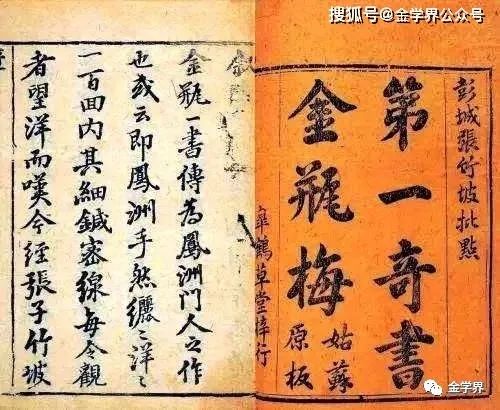 搜狐号@金学界公众号
彭城張竹坡批點
第一奇書
金瓶梅
姑蘇
原板
皐鶴草堂梓行
金瓶一書傳為鳳洲門人之作
也或云即鳳洲手然纚〻洋〻
一百面内其細鍼密線每令觀
者望洋而嘆今經張子竹坡
金学界